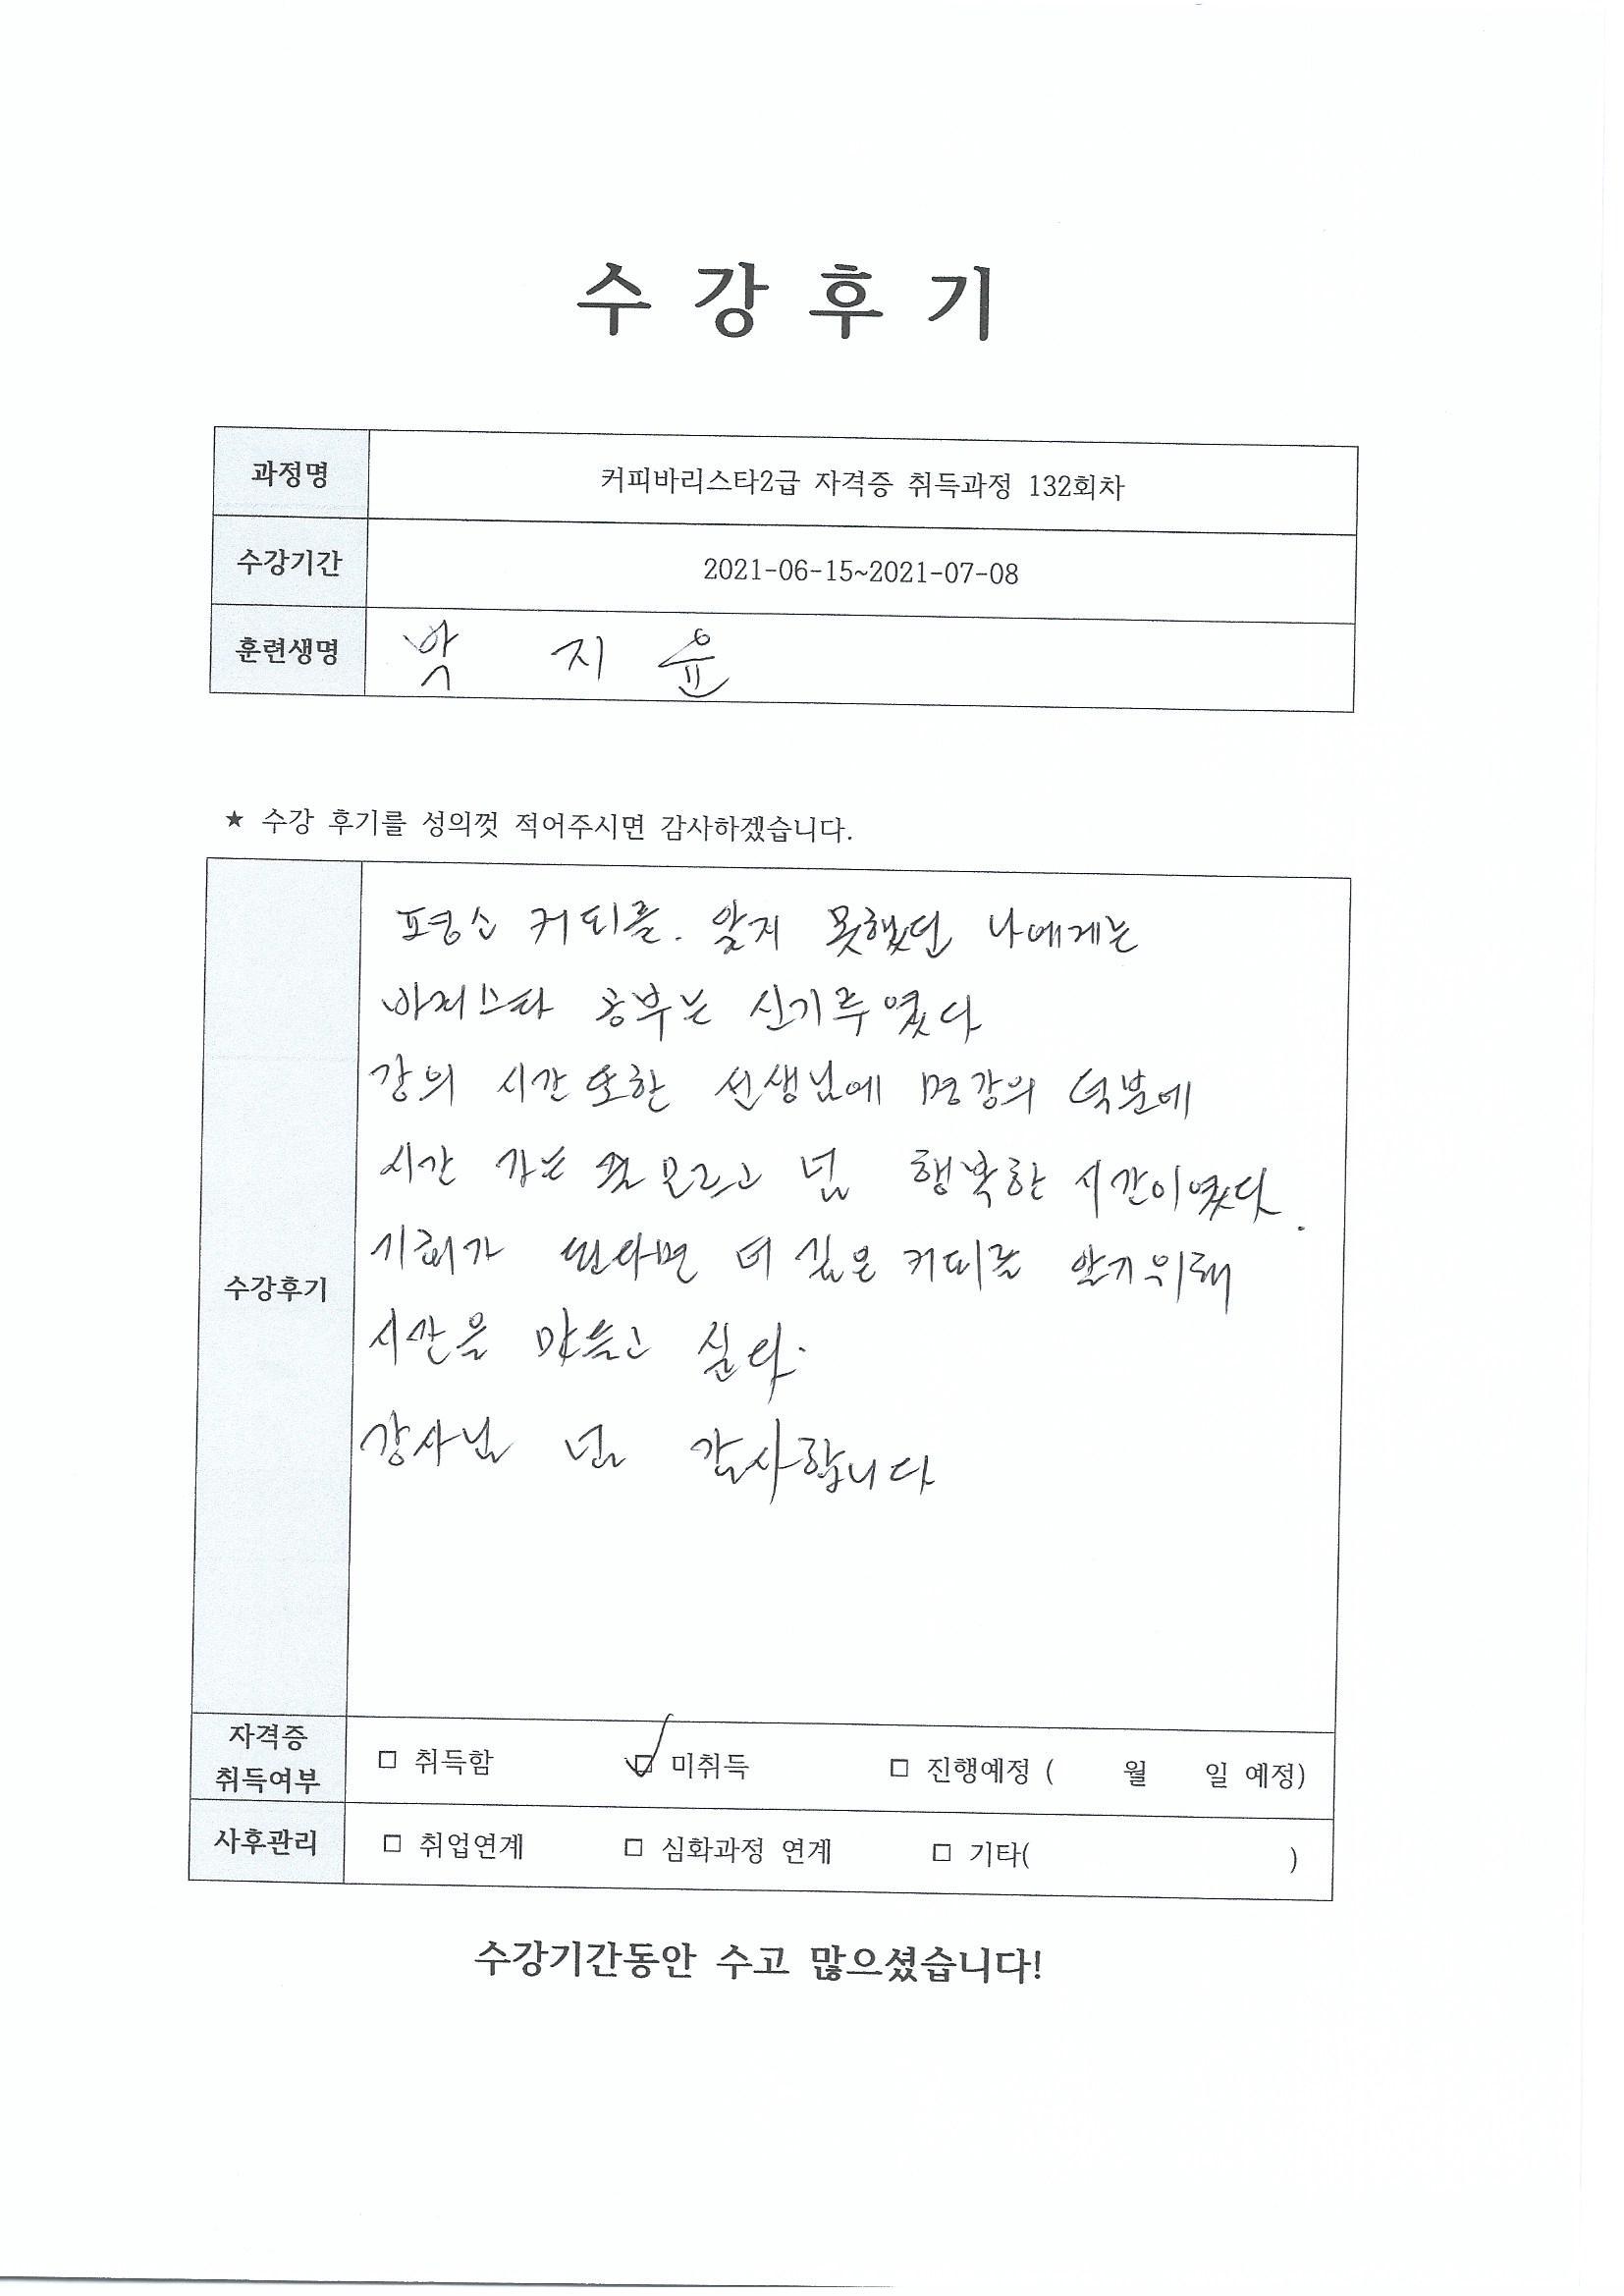 수강후기
과정명 커피바리스타2급 자격증 취득과정 132회차
수강기간 2021-06-15~2021-07-08
훈련생명 박 지 윤
★ 수강 후기를 성의껏 적어주시면 감사하겠습니다.
수강후기
평소 커피를. 알지 못했던 나에게는
바리스타 공부는 신기루였다
강의 시간 또한 선생님에 명강의 덕분에
시간 가는 줄 모르고 넘 행복한 시간이였다.
기회가 된다면 더 깊은 커피를 알기위해
시간을 만들고 싶다.
강사님 넘 감사합니다
자격증
취득여부
□ 취득함 □ 미취득 □ 진행예정 ( 월 일 예정)
사후관리 □ 취업연계 □ 심화과정 연계 □ 기타( )
수강기간동안 수고 많으셨습니다!